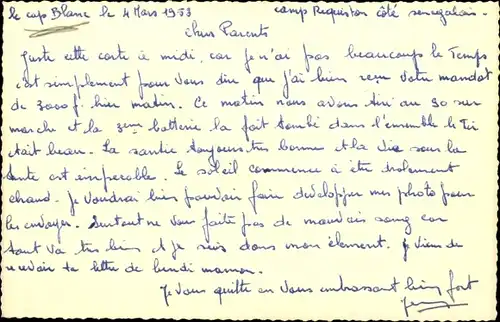 le cap Blanc le 4 Mars 1953 camp Requiston côté senegalais.
chers Parents
Juste cette carte à midi, car je n'ai pas beaucoup le temps
c'est simplement pour vous dire que j'ai bien reçu votre mandat
de 3000 f. hier matin. Ce matin nous avons tiré au 30 sur
marche et la 3eme batterie l'a fait tombé dans l'ensemble le tir
était beau. La santée toujours très bonne et la vie sous la
tente est impecable. Le soleil commence à être drolement
chaud. Je voudrai bien pouvoir faire developper mes photo pour
les envoyer. Surtout ne vous faite pas de mauvais sang car
tout va très bien et je suis dans mon élement. Je viens de
recevoir ta lettre de lundi maman.
Je vous quitte en vous embrassant bien fort